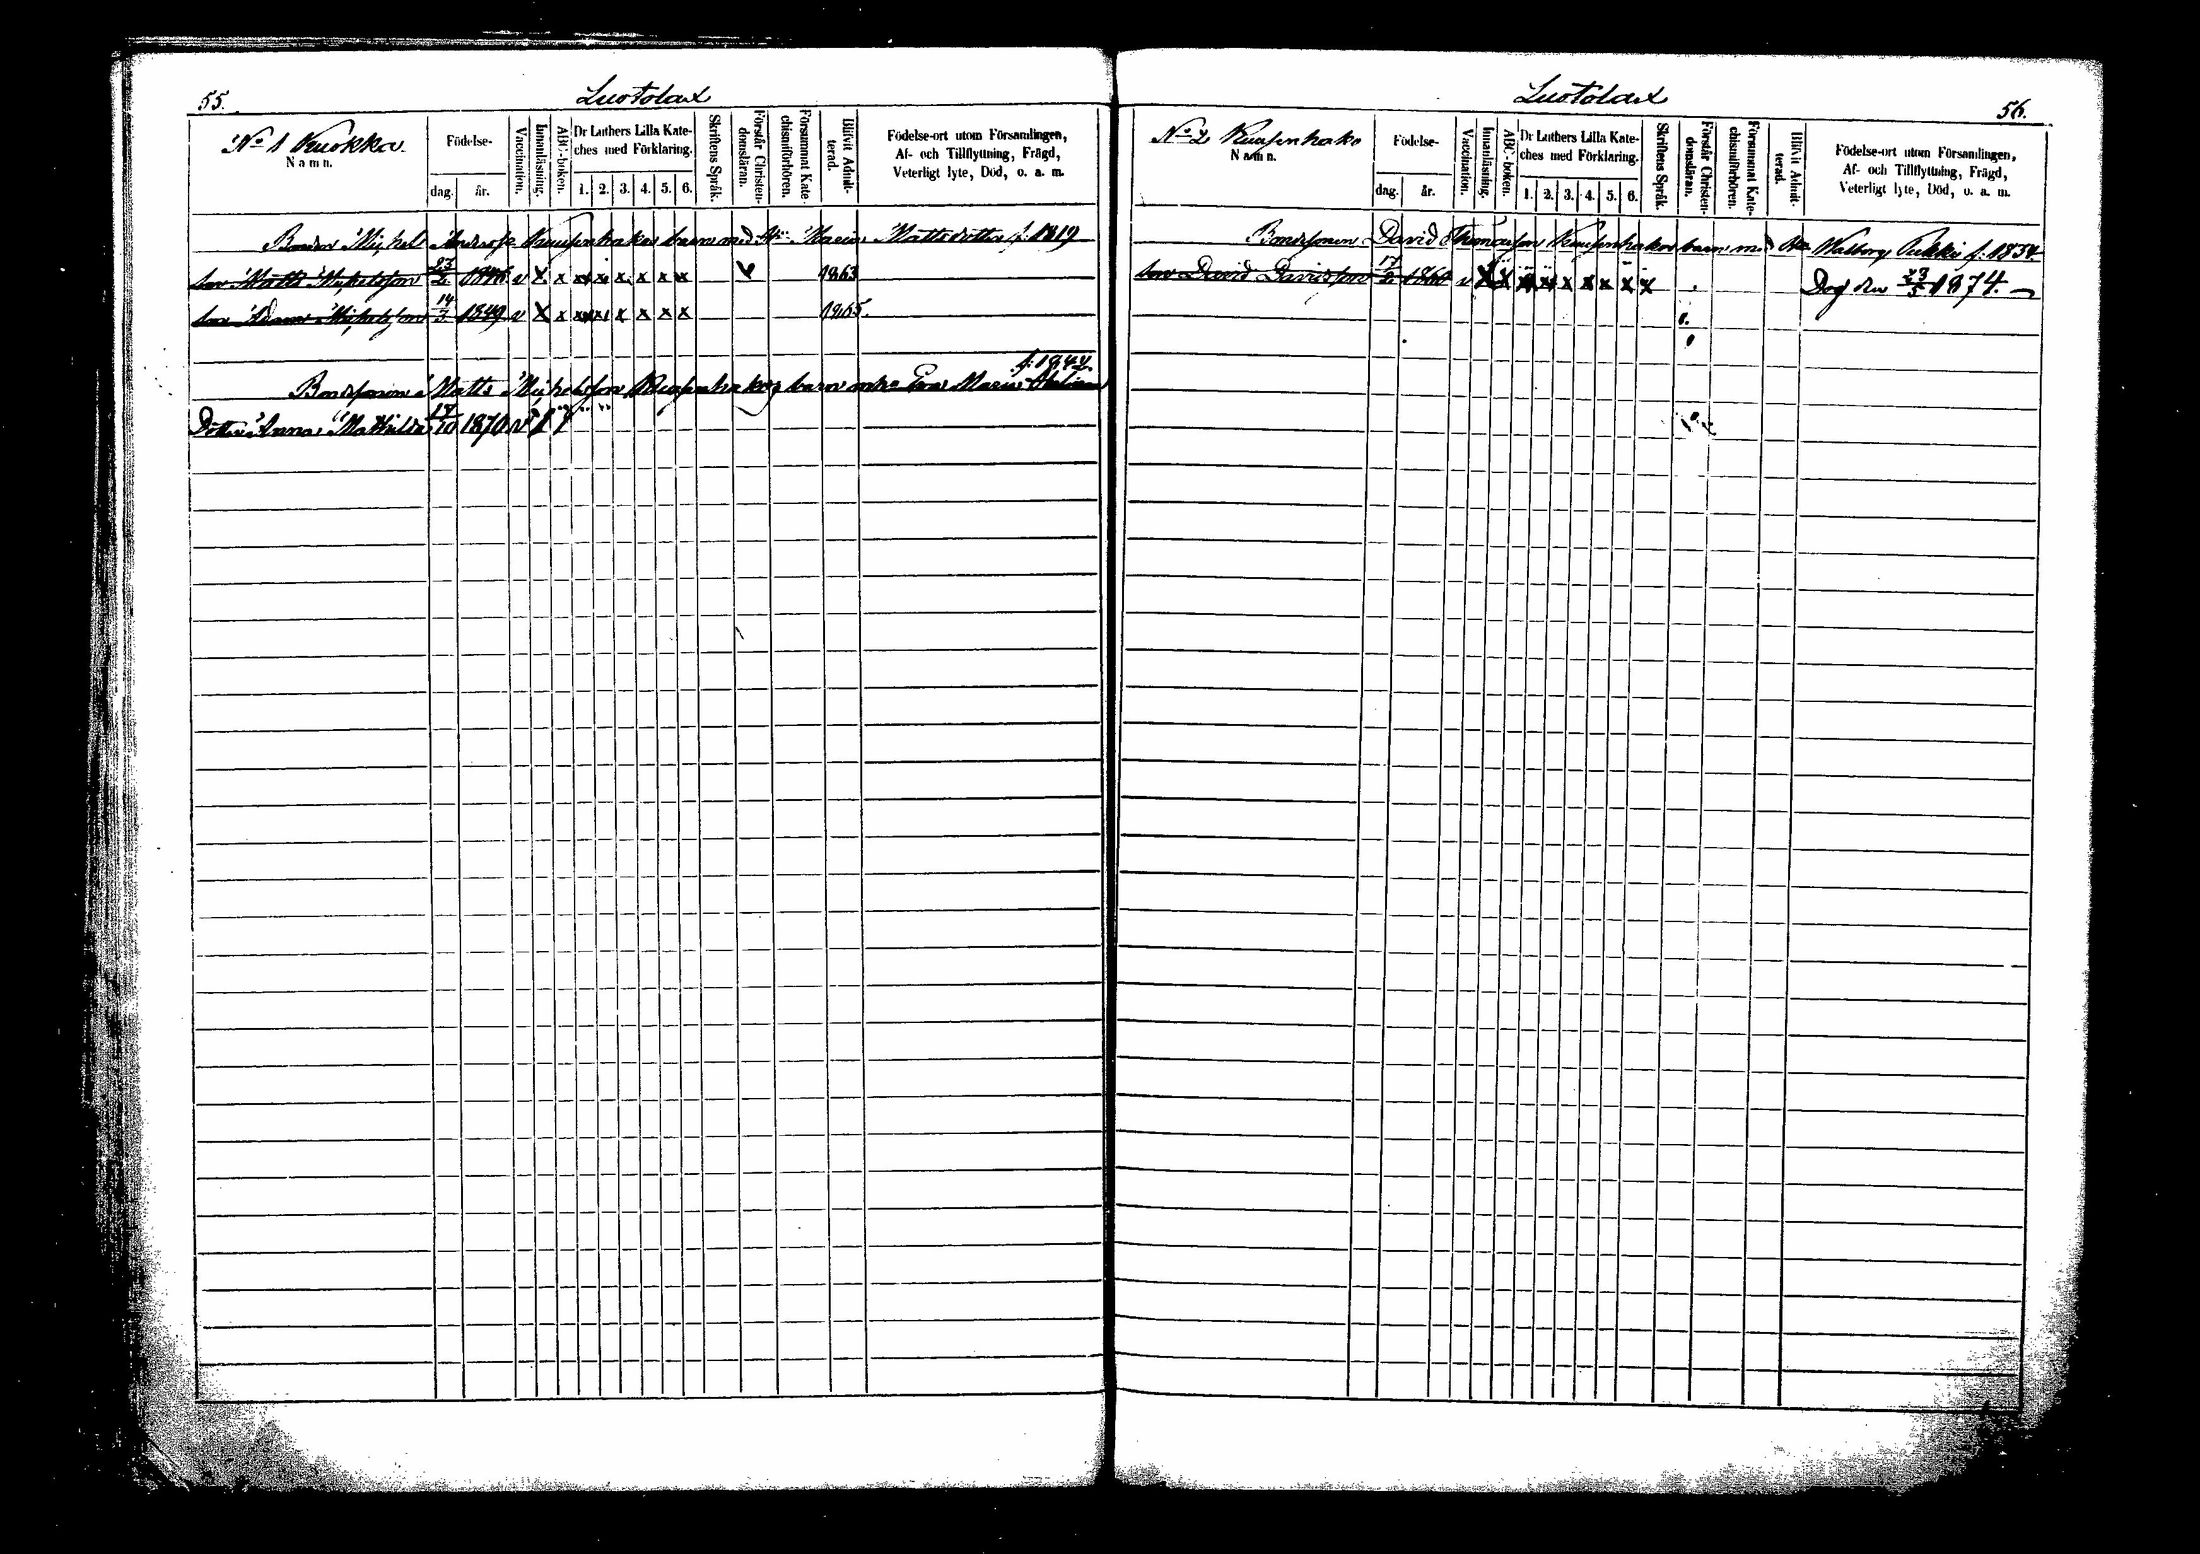 55.
Luotolax
No 1 Kuokka.
Namn.
Födelse-
dag. år.
Vaccination.
Innanläsning.
ABC-boken.
Dr Luthers Lilla Kate-
ches med Förklaring.
1. 2. 3. 4. 5. 6.
Skriftens Språk.
Förstår Christen-
domsläran.
Försummat Kate-
chismiförhören.
Blifvit Admit-
terad.
Födelse-ort utom Församlingen,
Af- och Tillflyttning, Frägd,
Veterligt lyte, Död, o. a. m.
Bonden Michel Andersp. barn med Maria Mattsdotter f. 1819
son Matts Mickelsson 23/2 v x x x x x x x x 1863
son Adam Mickelsson 14/3 1849 v x x x x x x x x 1865.
f. 1844
Bondesonen Matts Mickelsson barn m Eva Maria
Dotter Anna Mathilda 17/10 1870 v
56.
Luotolax
No 2 Kuusenhako
Namn.
Födelse-
dag. år.
Vaccination.
Innanläsning.
ABC-boken.
Dr Luthers Lilla Kate-
ches med Förklaring.
1. 2. 3. 4. 5. 6.
Skriftens Språk.
Förstår Christen-
domsläran.
Försummat Kate-
chismiförhören.
Blifvit Admit-
terad.
Födelse-ort utom Församlingen,
Af- och Tillflyttning, Frägd,
Veterligt lyte, Död, o. a. m.
Bondesonen David Thomasson Kuusenhakos barn med Walborg Pukki f. 1834
son David Davidsson 17/2 1860 v x x x x x x x x x Dog den 23/5 1874.